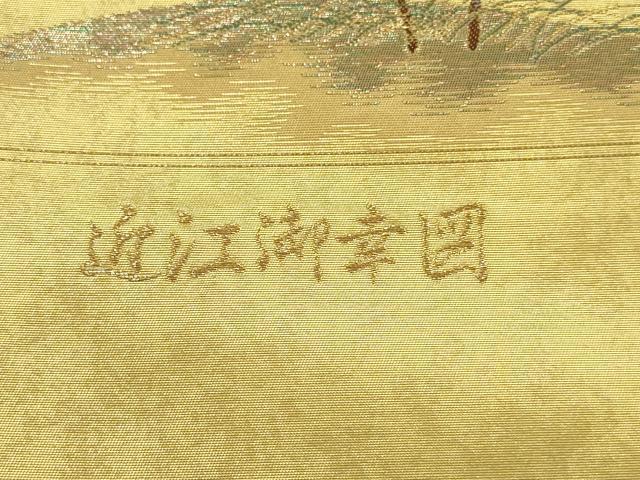 近江御幸図